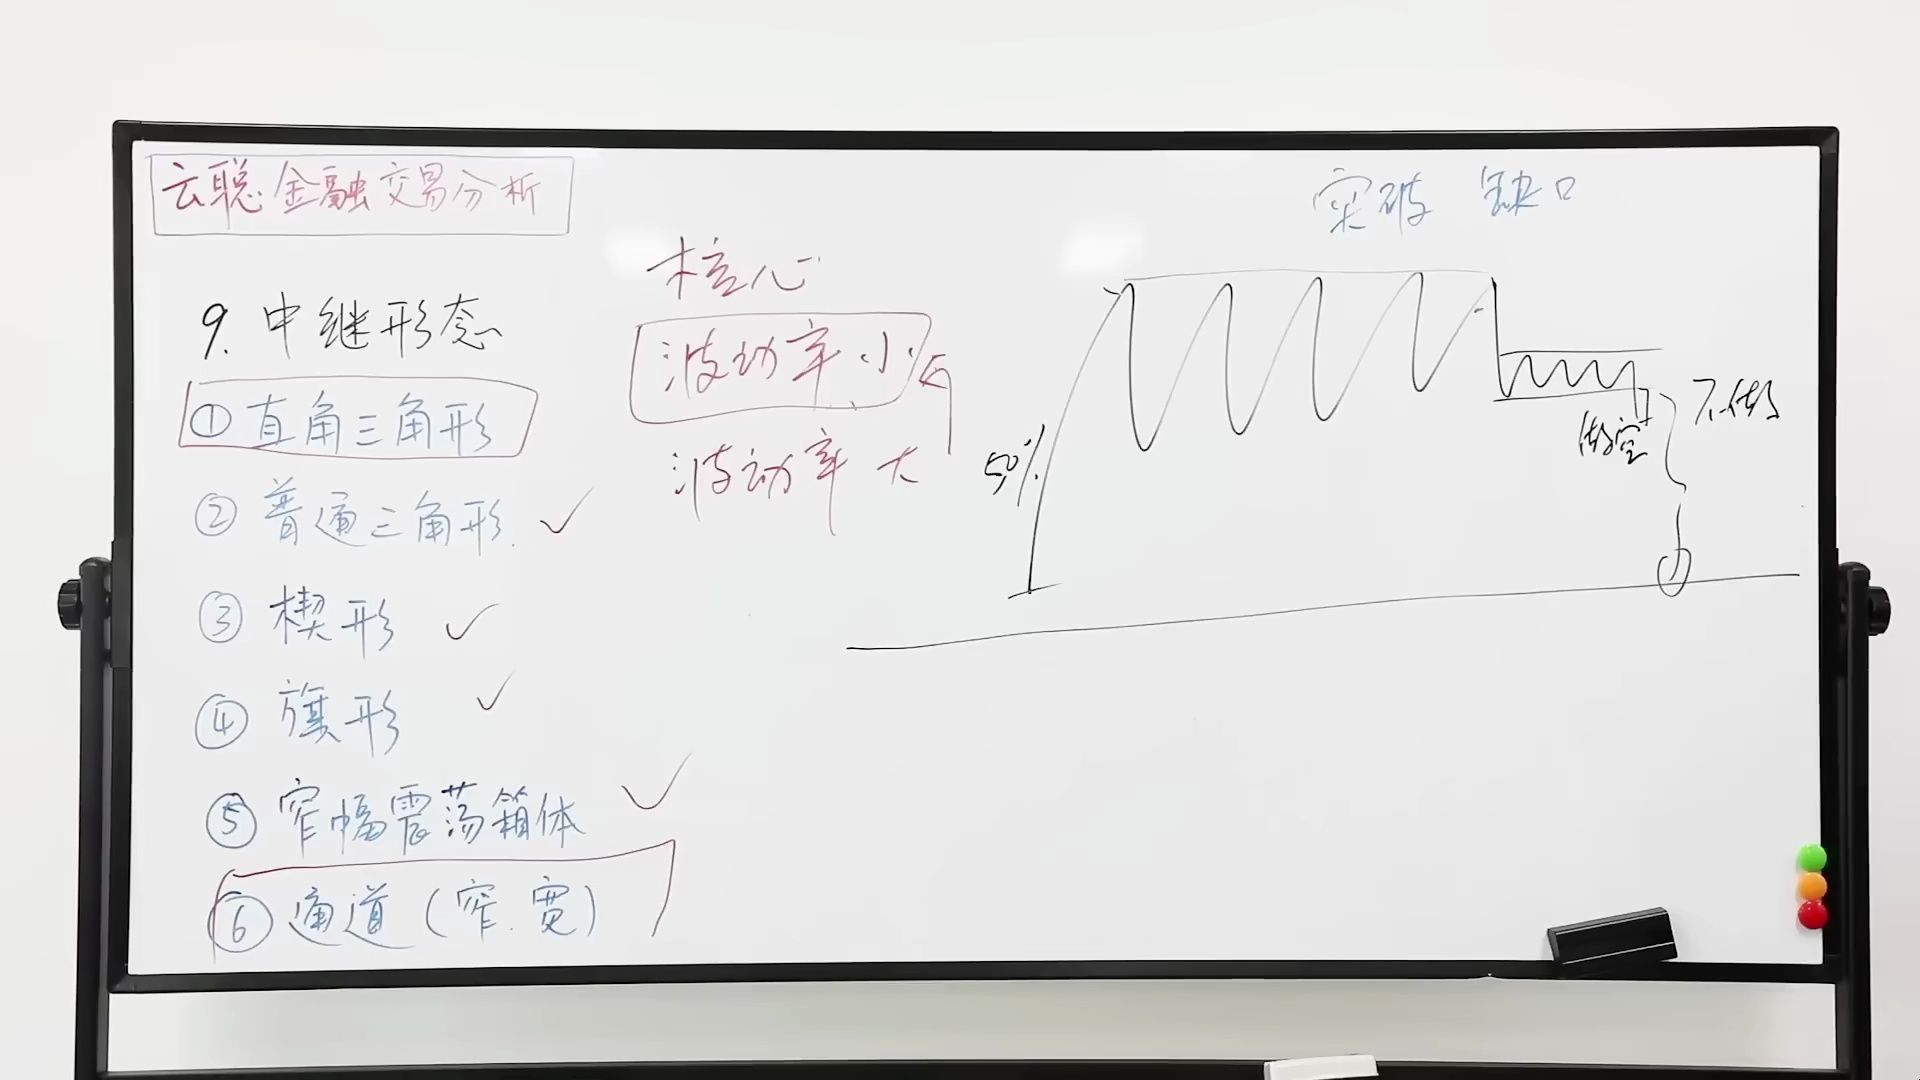 云聪金融交易分析
突破 缺口
核心
波动率小后
波动率大
9. 中继形态
① 直角三角形
② 普通三角形
③ 楔形
④ 旗形
⑤ 窄幅震荡箱体
⑥ 通道(窄.宽)
50%
做空
不做